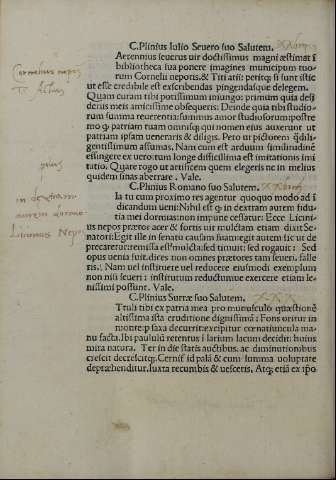 C.Plinius Iulio Seuero suo Salutem.
Herennius seuerus uir doctissimus magni æstimat ĩ
bibliotheca sua ponere imagines municipum tuo-
rum Cornelii nepotis & Titi atii: petitq; si sunt istic
ut esse credibile est exscribendas pingendasque delegem.
Quam curam tibi potissimum iniungo: primum quia desi
deriis meis amicissime obsequeris: Deinde quia tibi studio-
rum summa reuerentia: summus amor studiosorum: postre
mo q̃ patriam tuam omnisq; qui nomen eius auxerunt ut
patriam ipsam ueneraris & diligis. Peto ut pictorem q̃ dili-
gentissimum assumas. Nam cum est arduum similitudinẽ
effingere ex uero: tum longe difficillima est imitationis imi
tatio. Quare rogo ut artificem quem elegeris ne in melius
quidem sinas aberrare. Vale.
C.Plinius Romano suo Salutem.
Ia tu cum proximo res agentur quoquo modo ad i
dicandum ueni: Nihil est q̃ in dextram aurem fidu-
tia mei dormias: non impune cessatur: Ecce Licini-
us nepos prætor acer & fortis uir mulctam etiam dixit Se-
natori: Egit ille in senatu causam suam: egit autem sic ut de
precaretur: remissa est mulcta: sed timuit: sed rogauit: Sed
opus uenia fuit. dices non omnes prætores tam seueri. falle
ris. Nam uel instituere uel reducere eiusmodi exemplum
non nisi seueri: institutum reductumue exercere etiam le-
nissimi possunt. Vale.
C.Plinius Surræ suo Salutem.
Ttuli tibi ex patria mea pro munusculo quæstionẽ
altissima ista eruditione dignissimã: Fons oritur in
monte: p saxa decurrit: excipitur cœnatiuncula ma-
nu facta. Ibi paululũ retentus ĩ larium lacum decidit: huius
mira natura. Ter in die statis auctibus. ac diminutionibus
crescit decrescitq; Cernit̃ id palã & cum summa uoluptate
deprænditur. Iuxta recumbis & uesceris. Atq; etiã ex ip̃o
Cornelius nepos
in dextram
aurem dormire
Licinius Nepos